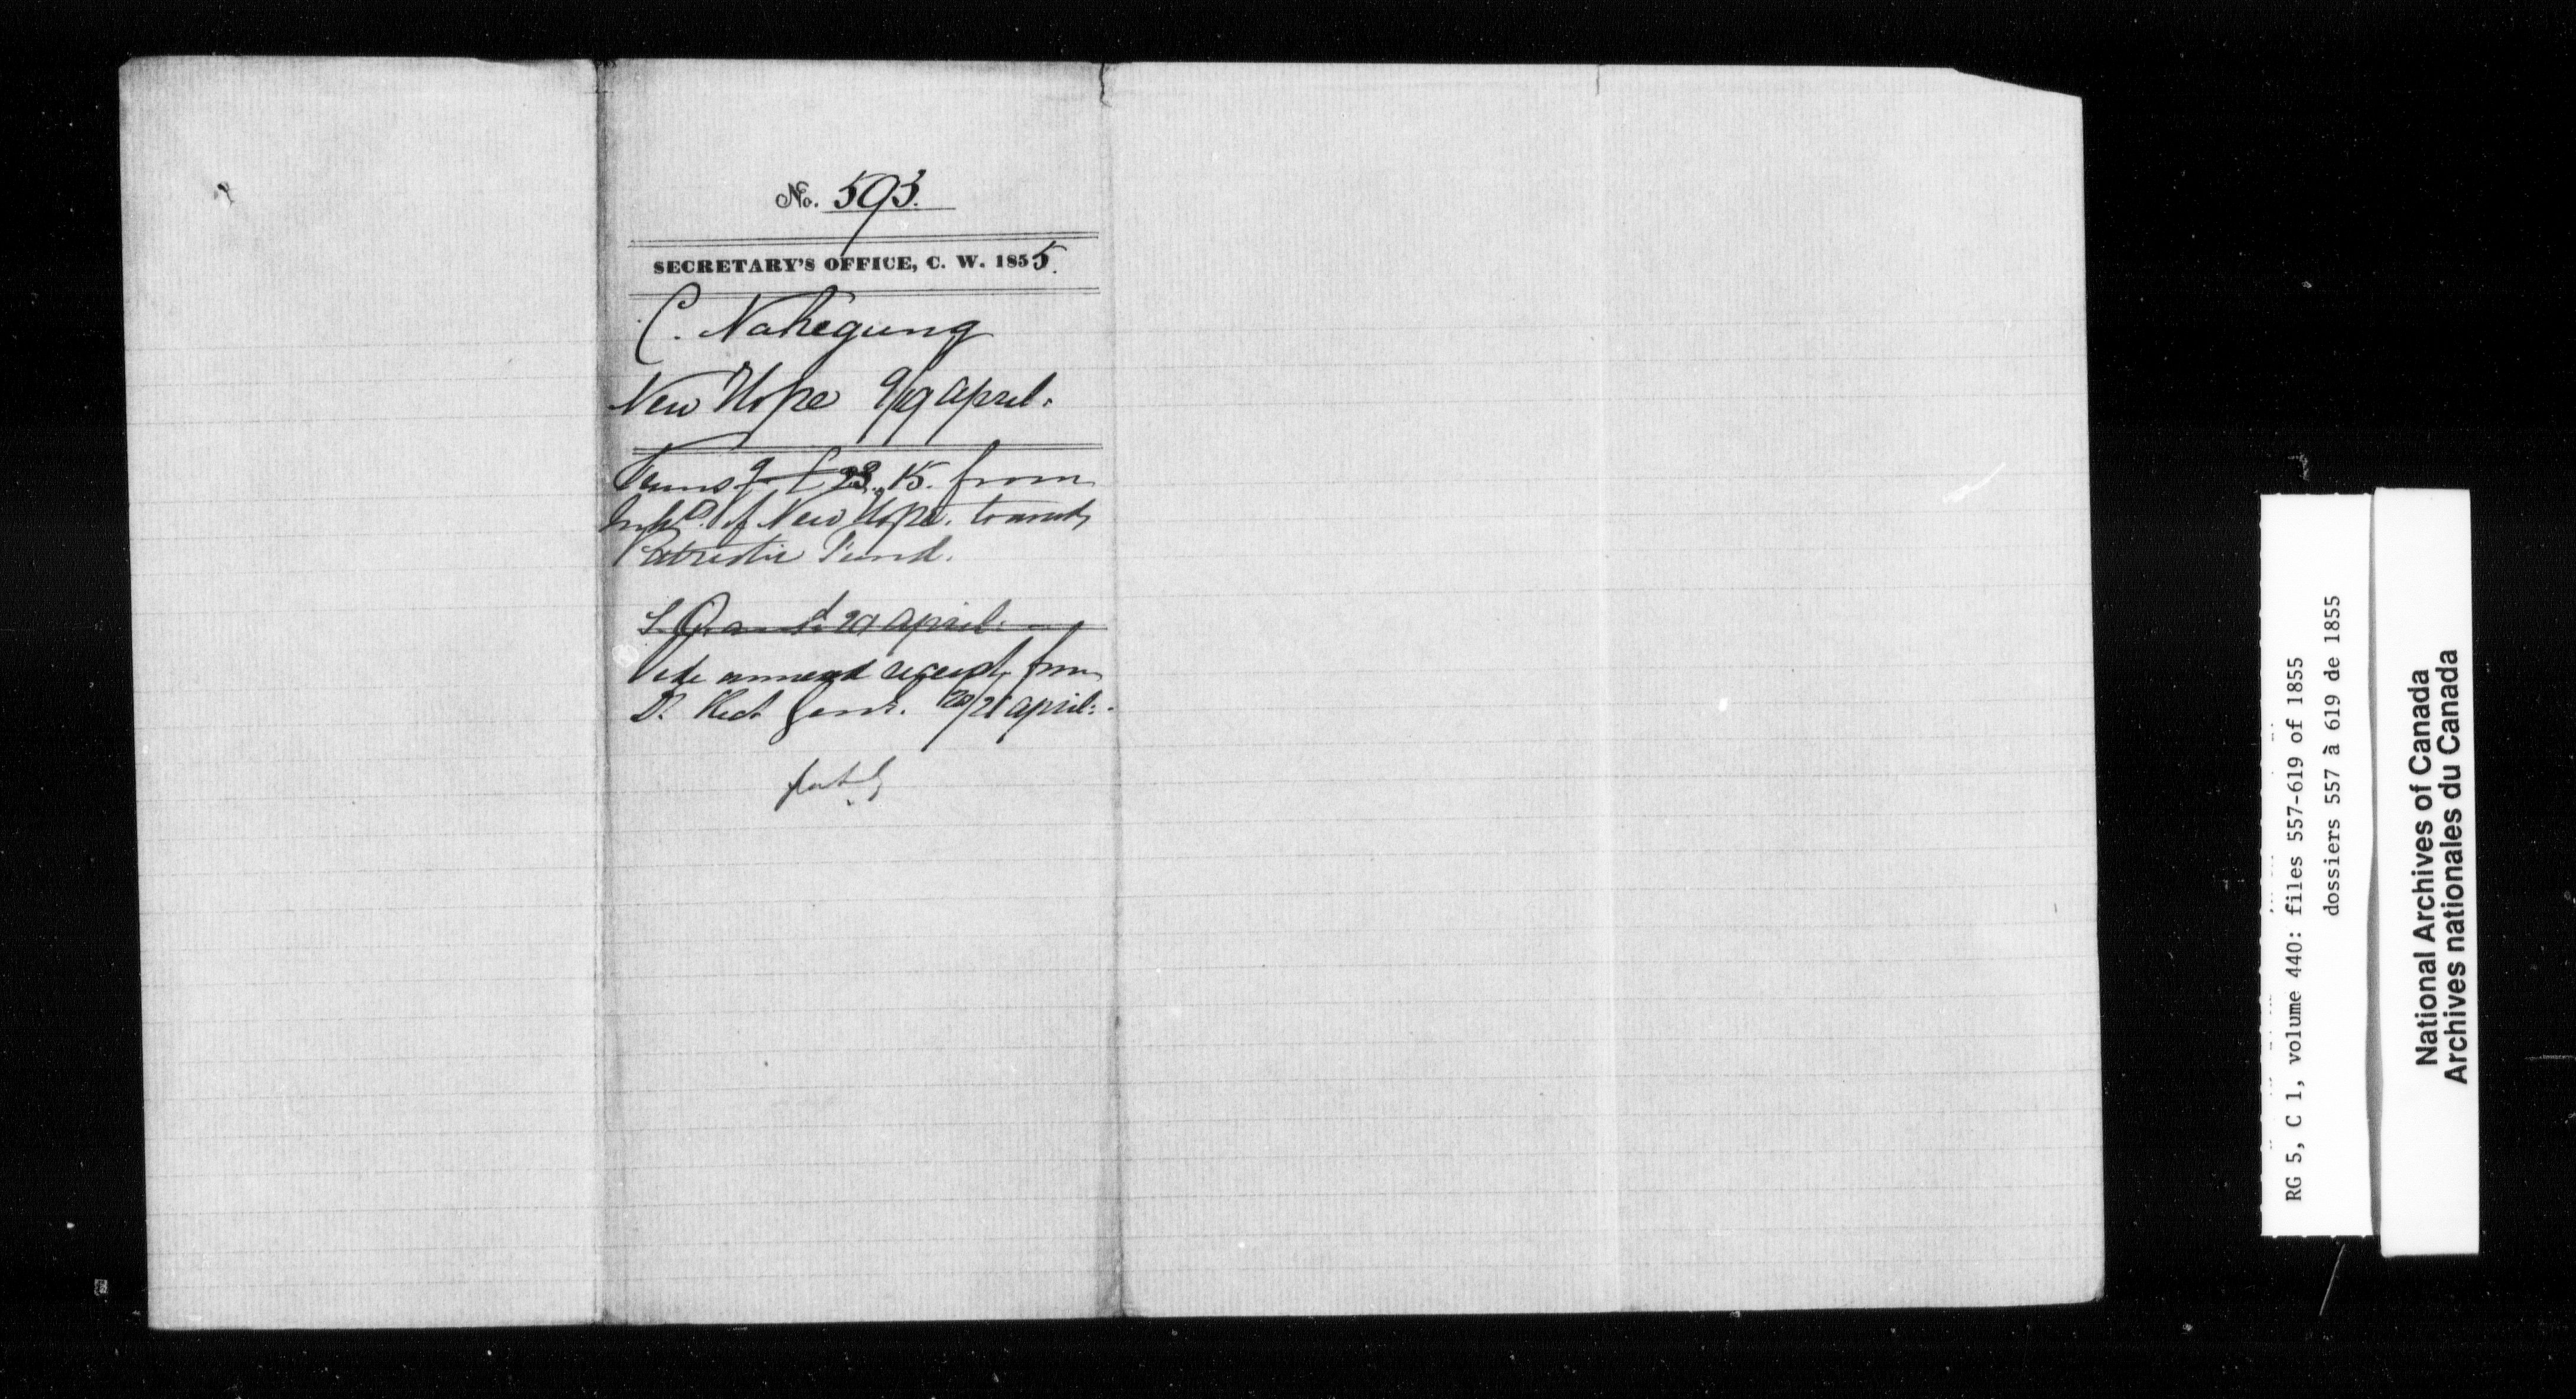 No. 593.
SECRETARY'S OFFICE, C. W. 1855.
C. Nahegung
New Hope 9/19 April.
Trans£ 23,, 15. from
of New Hope. towards
Patriotic Fund.
20 April.
Vide annexed receipt from
D. Rect Genl. 20/21 April.
RG 5, C 1, volume 440: files 557-619 of 1855
dossiers 557 à 619 de 1855
National Archives of Canada
Archives nationales du Canada